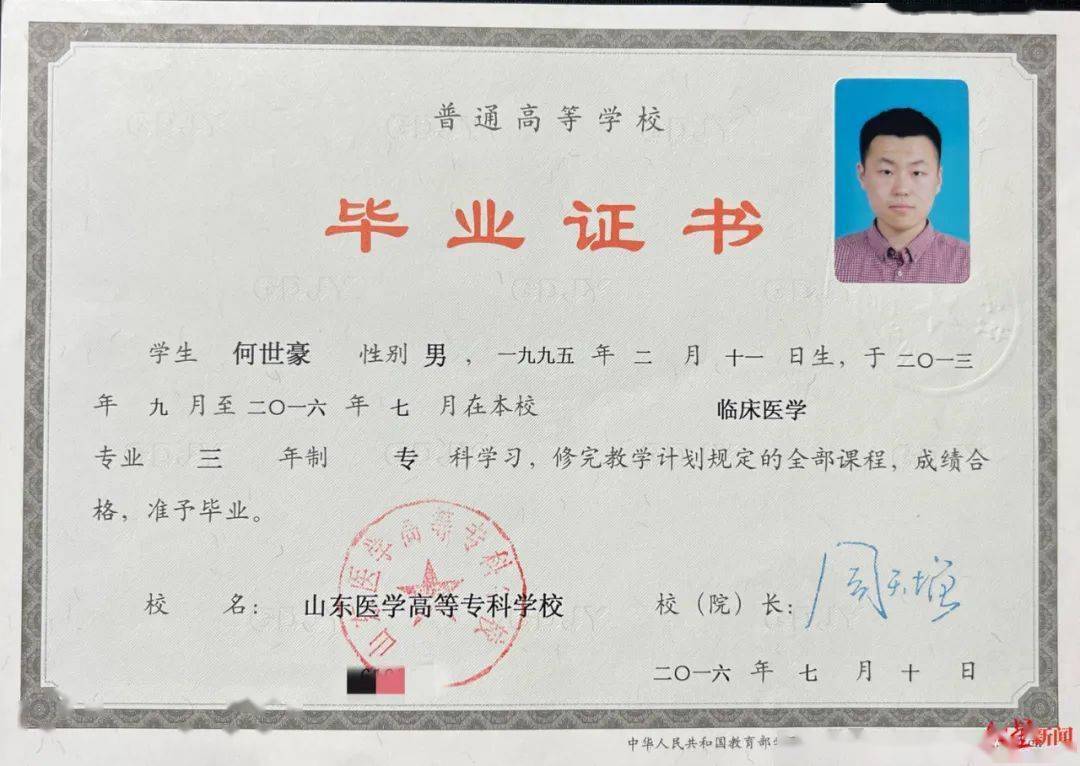 普通高等学校
毕业证书
学生 何世豪 性别 男，一九九五 年 二 月 十一 日生，于 二〇一三
年 九 月至 二〇一六 年 七 月在本校 临床医学
专业 三 年制 专 科学习，修完教学计划规定的全部课程，成绩合
格，准予毕业。
山东医学高等专科学校
校 名： 山东医学高等专科学校 校（院）长：周天增
二〇一六 年 七 月 十 日
中华人民共和国教育部
新闻